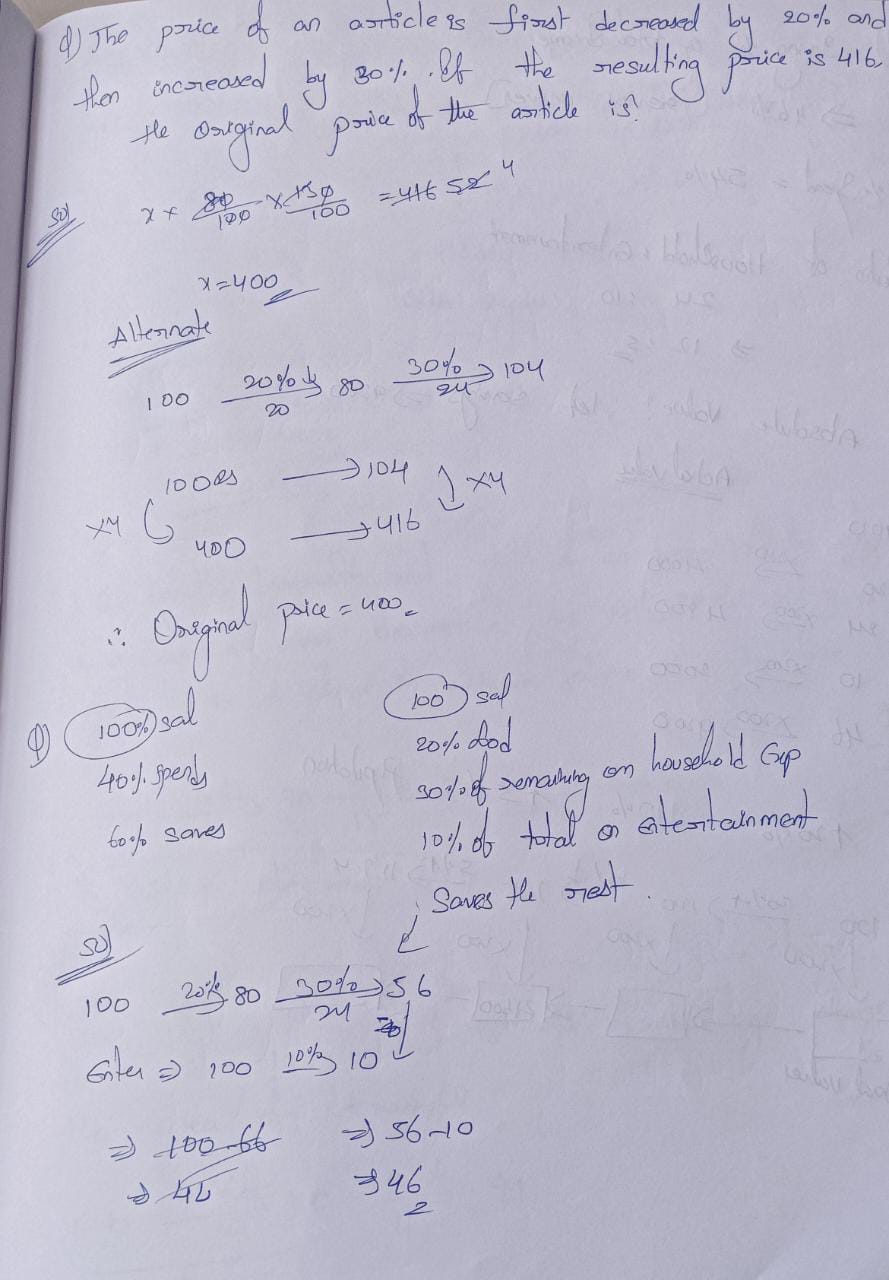 Q) The price of an article is first decreased by 20% and
then increased by 30%. If the resulting price is 416,
the original price of the article is?
sol
x × 80/100 × 130/100 = 416 52 4
x = 400
Alternate
100 20%↓ 20 → 80 30% 24 → 104
100Rs → 104
×4 ×4
400 → 416
∴ Original price = 400
Q) 100% sal
40% spends
60% saves
100 sal
20% food
30% of remaining on household Exp
10% of total on Entertainment
Saves the rest.
sol
100 20% → 80 30% 24 → 56
Enter ⇒ 100 10% → 10
⇒ 100-66 ⇒ 56-10
⇒ 46